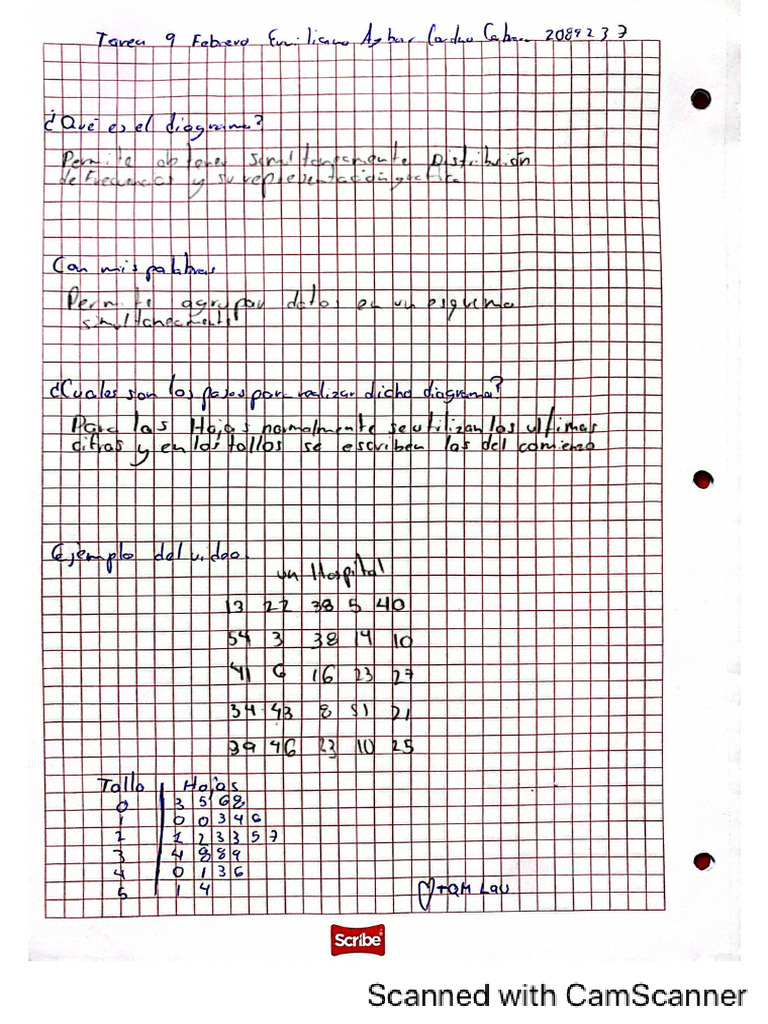 Tarea 9 Febrero Emiliano 2089237
¿Qué es el diagrama?
Permite obtener simultaneamente Distribución
de Frecuencias y su representación grafica
Con mis palabras
Permite agrupar datos en un esquema
simultaneamente
¿Cuales son los pasos para realizar dicho diagrama?
Para las Hojas normalmente se utilizan los ultimas
cifras y en los tallos se escriben las del comienzo
Ejemplo del video.
un Hospital
13 22 38 5 40
54 3 38 14 10
41 6 16 23 27
34 43 8 51 21
39 46 23 10 25
Tallo Hojas
0 3 5 6 8
1 0 0 3 4 6
2 1 2 3 3 5 7
3 4 8 8 9
4 0 1 3 6
5 1 4
TQM Lau
Scribe
Scanned with CamScanner